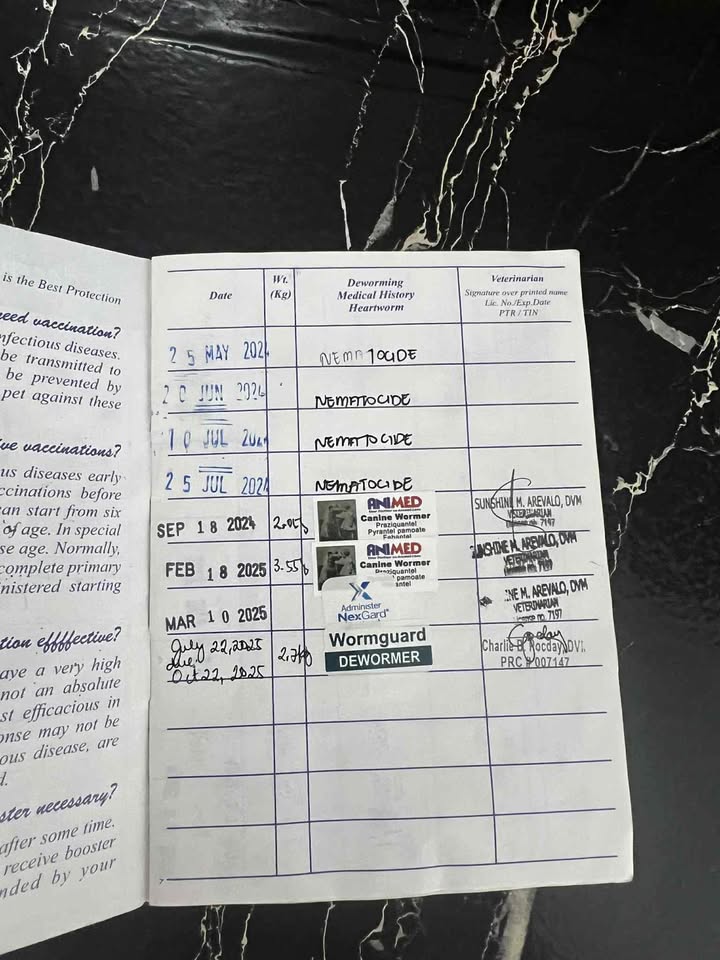 is the Best Protection
need vaccination?
nfectious diseases.
be transmitted to
be prevented by
pet against these
ve vaccinations?
us diseases early
ccinations before
an start from six
of age. In special
se age. Normally,
complete primary
nistered starting
tion effffective?
ave a very high
not an absolute
st efficacious in
onse may not be
ous disease, are
d.
ster necessary?
after some time.
receive booster
nded by your
Date
Wt.
(Kg)
Deworming
Medical History
Heartworm
Veterinarian
Signature over printed name
Lic. No./Exp.Date
PTR / TIN
25 MAY 202
NEMATOCIDE
20 JUN 2024
NEMATOCIDE
10 JUL 202
NEMATOCIDE
25 JUL 2024
NEMATOCIDE
SEP 18 2024
ANIMED
Canine Wormer
Praziquantel
Pyrantel pamoate
Febantel
SUNSHINE M. AREVALO, DVM
VETERINARIAN
7197
FEB 18 2025
3.55
ANIMED
Canine Wormer
Praziquantel
pamoate
antel
SUNSHINE M. AREVALO, DVM
VETERINARIAN
MAR 10 2025
Administer
NexGard
NE M. AREVALO, DVM
VETERINARIAN
no. 7197
July 22, 2025
due
Oct 22, 2025
Wormguard
DEWORMER
Charlie Rocday DV
PRC # 007147
7